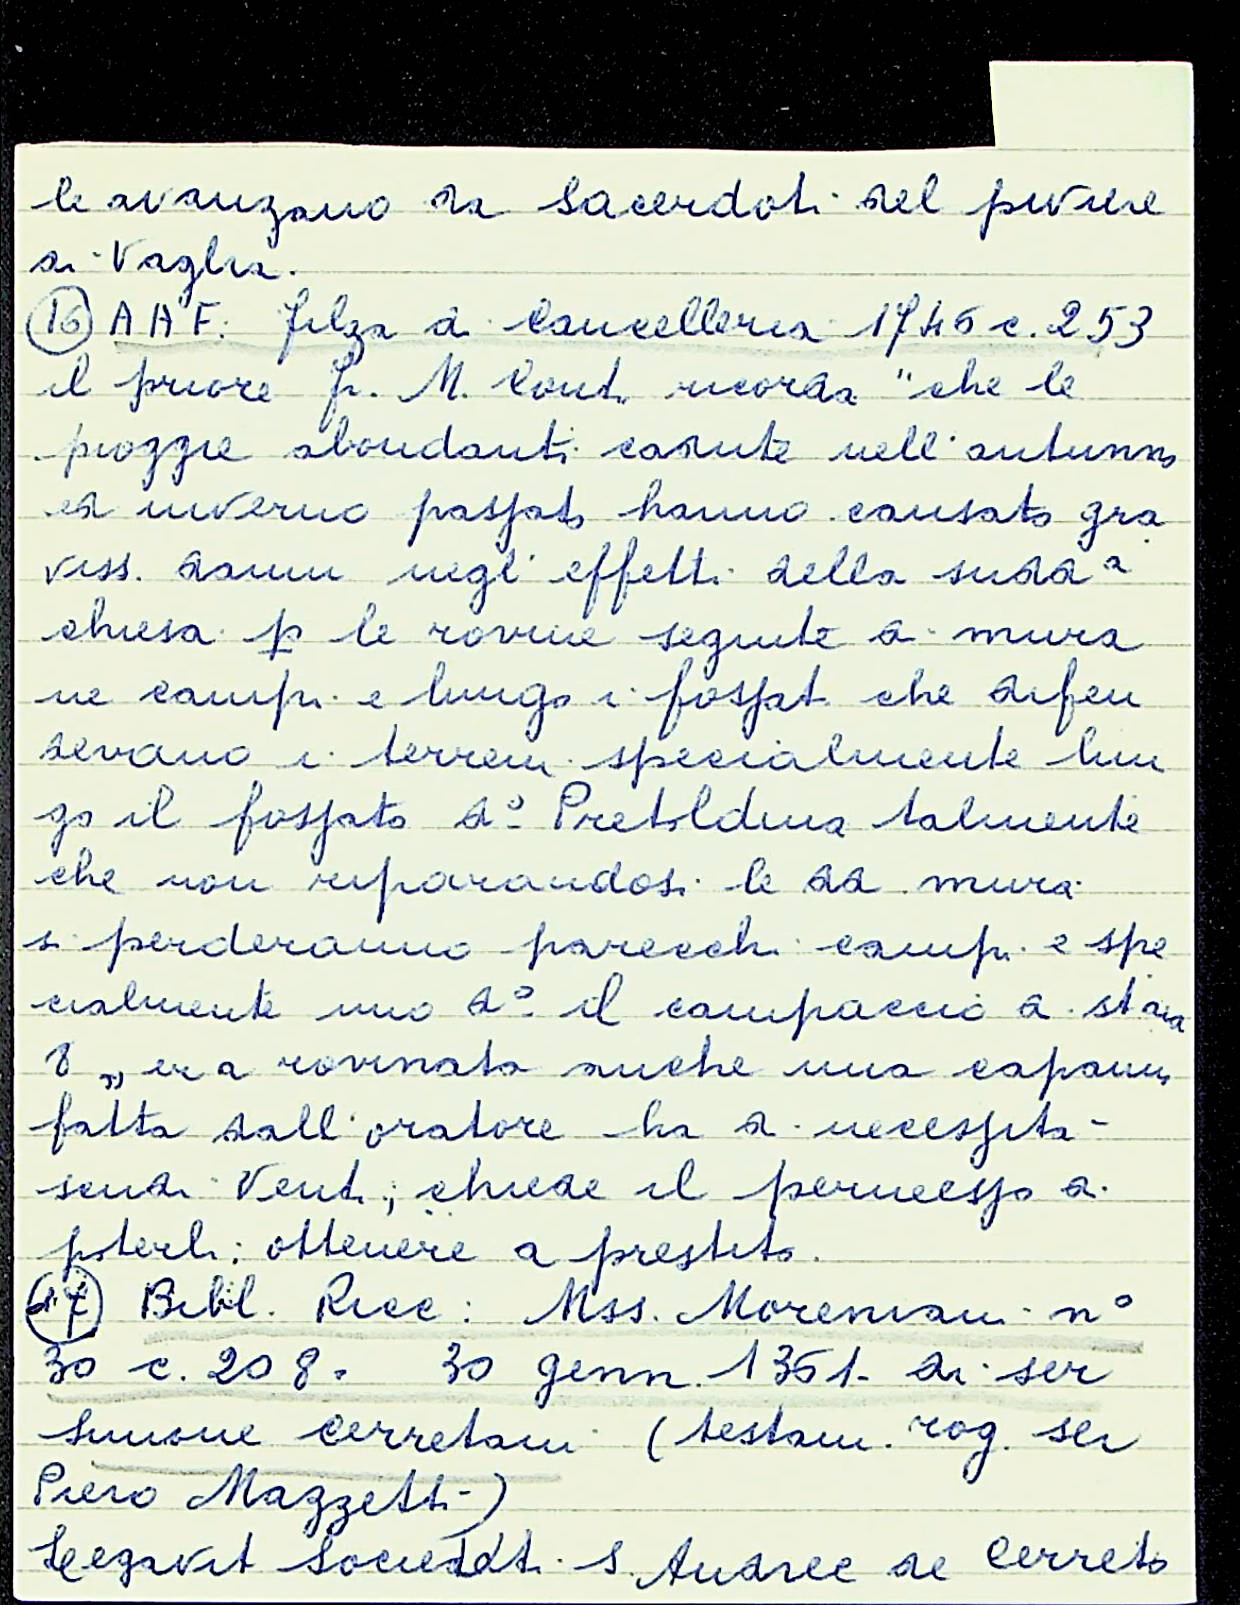 le avanzano da sacerdoti del piviere
di Vaglia.
(16) A A F. filza di Cancelleria 1746 c. 253
il priore fr. M. Conti ricorda "che le
pioggie abondanti cadute nell'autunno
ed inverno passato hanno causato gra
viss. danni negli effetti della sudd a
chiesa p le rovine seguite di mura
ne campi e lungo i fossati che difen
devano i terreni specialmente lun
go il fossato d° Pretoldina talmente
che non riparandosi le dd mura
si perderanno parecchi campi e spe
cialmente uno d° il campaccio di staia
8 „ era rovinata anche una capanna
fatta dall'oratore ha di necessita-
scudi Venti; chiede il permesso di
poterli ottenere a prestito.
(17) Bibl. Ricc: Mss. Moreniani n°
30 c. 208. 30 genn. 1351. di ser
Simone Cerretani (testam. rog. ser
Piero Mazzetti-)
Legavit Societati S. Andree de Cerreto